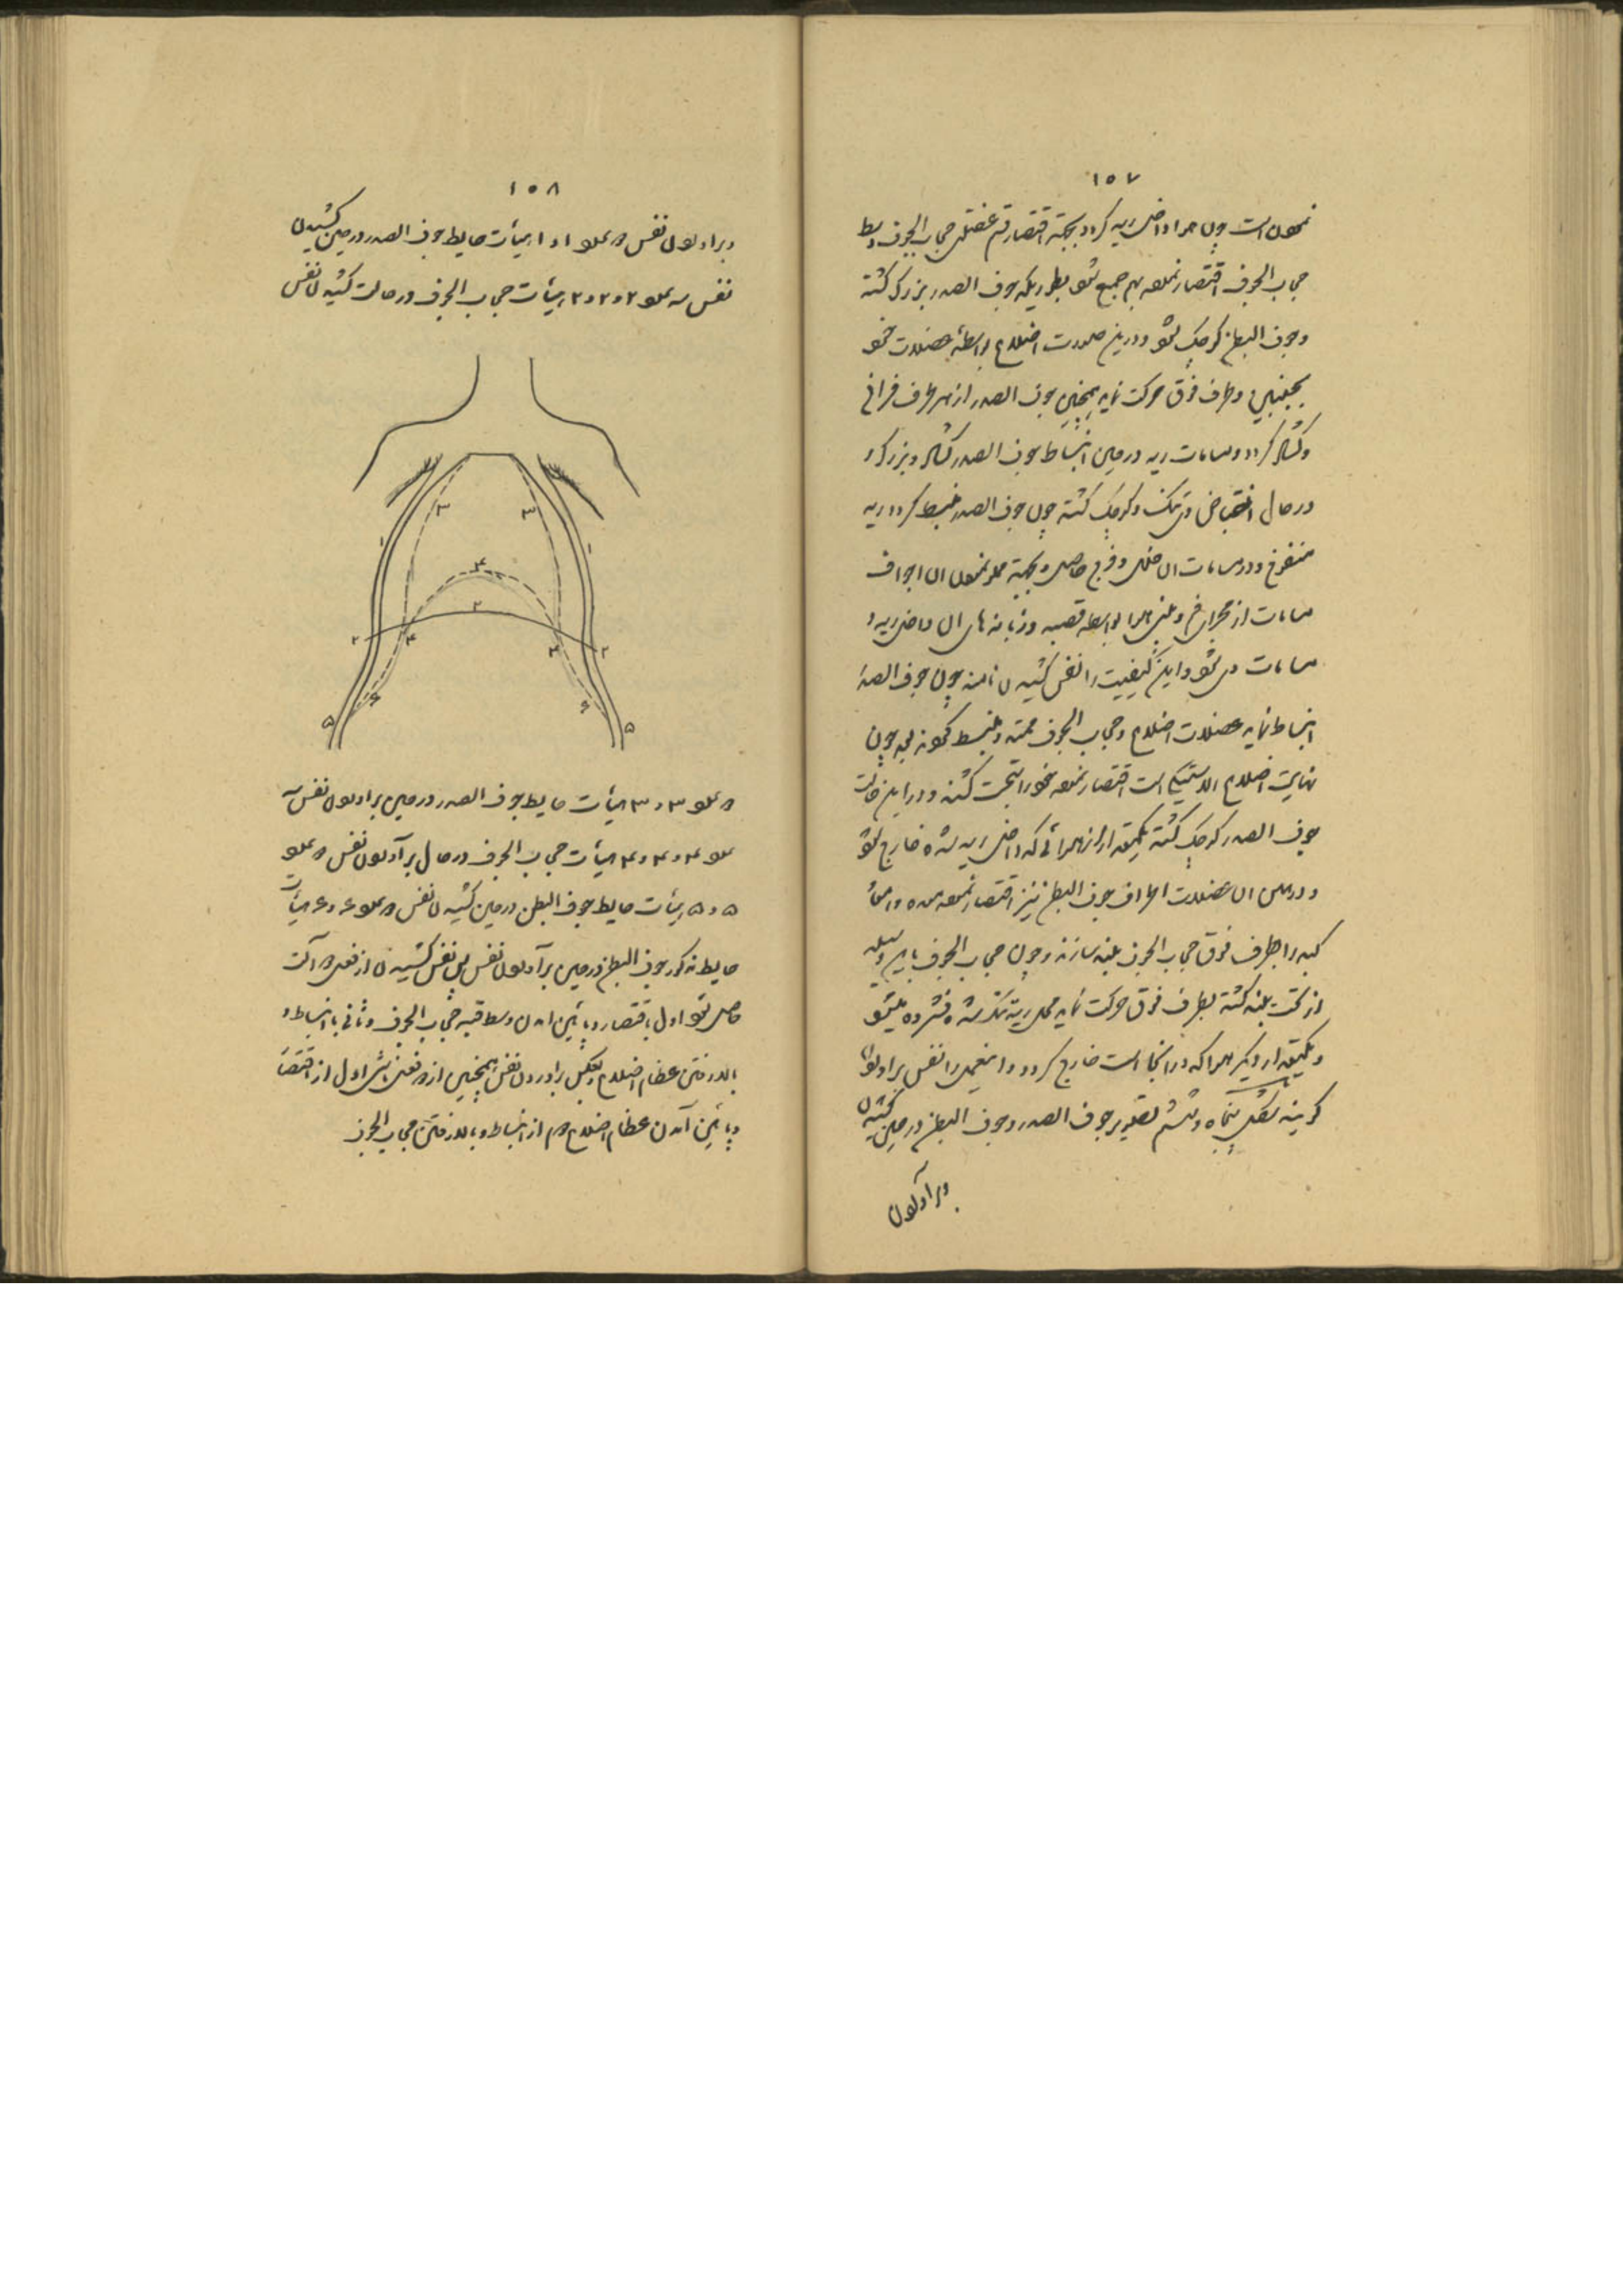 ۱۵۷
نمودن است چون هوا داخل ریه گردد بجهة اقتصار قسم عضلی حجاب الجوف وسط
حجاب الجوف اقتصار نموده بهم جمع شود بطوریکه جوف الصدر بزرگ گشته
وجوف البطن کوچک شود و درین صورت اضلاع بواسطۀ عضلات خود
بجنبین و طرف فوق حرکت نماید همچنین جوف الصدر از هر طرف فراخ
وگشاد گردد و مسامات ریه در حین انبساط جوف الصدر گشاد و بزرگ و
در حال انقباض وی تنگ و کوچک گشته چون جوف الصدر منبسط گردد ریه
منفرخ و در مسامات آن خلل و فرج حاصل و بجهة مملو نمودن آن اجواف
مسامات از مجرای فم و بینی هوا بواسطه قصبه و زبانه های آن داخل ریه و
مسامات می شود و این کیفیت را نفس کشیدن نامند چون جوف الصدر
انبساط نماید عضلات اضلاع و حجاب الجوف ممتد و منبسط گردند چون
نهایت اضلاع است اقتصار نموده خود را تحت کشند و در این حالت
جوف الصدر کوچک گشته یکمقدار از هوائی که داخل ریه شده خارج شود
و در پس آن عضلات اطراف جوف البطن نیز اقتصار نموده معده و امعاء
کبد را بطرف فوق حجاب الجوف بلند سازند و چون حجاب الجوف باین وسیله
از تحت بلند گشته بطرف فوق حرکت نماید محل ریه تنگ شده فشرده میشود
و یکمقدار دیگر هوا که در آنجا است خارج گردد و اینعمل را نفس برآوردن
گویند شکل پنجاه و ششم تصویر جوف الصدر و جوف البطن در حین کشیدن
وبرآوردن
۱۵۸
وبرآوردن نفس ۱ و ۱ هیأت حایط جوف الصدر در حین کشیدن
نفس ۲ و ۲ و ۲ هیأت حجاب الجوف در حالت کشیدن نفس
۳
۳
۱
۱
۴
۲
۲
۴
۴
۲
۶
۶
۵
۵
۳ و ۳ هیأت حایط جوف الصدر در حین برآوردن نفس
۴ و ۴ و ۴ هیأت حجاب الجوف در حال برآوردن نفس
۵ و ۵ هیأت حایط جوف البطن در حین کشیدن نفس ۶ و ۶ هیأت
حایط مذکور جوف البطن در حین برآوردن نفس پس نفس کشیدن از
حاصل شود اول باقتصار و پائین آمدن وسط قبه حجاب الجوف و ثانی بانبساط و
بالا رفتن عظام اضلاع و بعکس برآوردن نفس همچنین از اول از اقتصار
و پائین آمدن عظام اضلاع دوم از انبساط و بالا رفتن حجاب الجوف